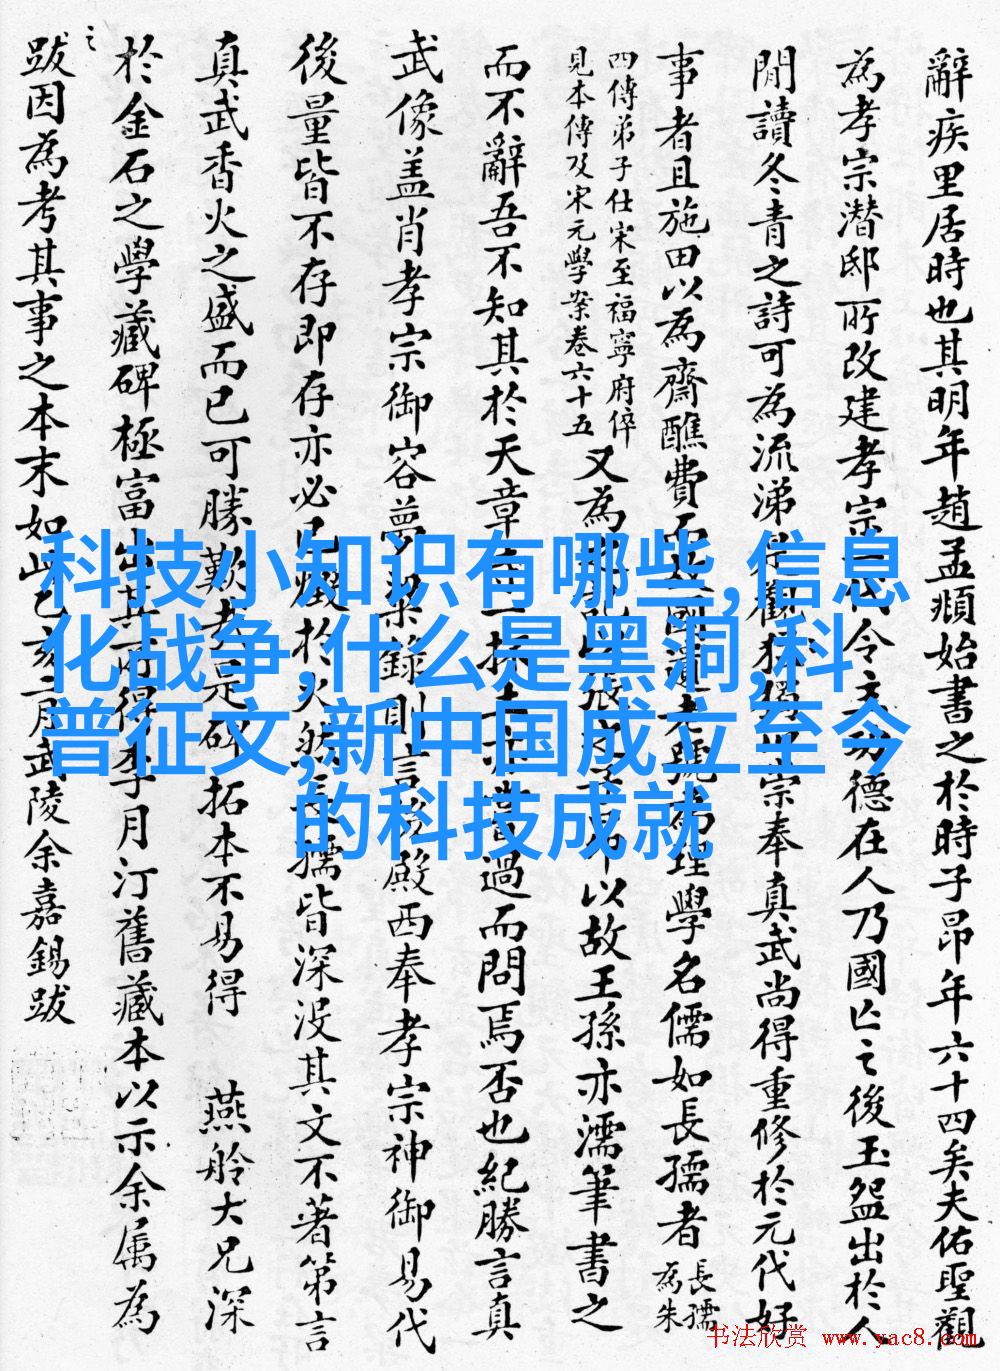 科技小知识有哪些,信息
化战争,什么是黑洞,科
普征文,新中国成立至今
的科技成就
辭疾里居時也其明年趙孟頫始書之於時子昂年六十四矣夫佑聖觀
為孝宗潛邸所改建孝宗代令功德在人乃國亡之後玉盌出於人
閒讀冬青之詩可為流涕是觀猶獨以宗奉真武尚得重修於元代好
事者且施田以為齋醮費而國遺老號為理學名儒如長孺者長孺為朱
四傳弟子仕宋至福寧府倅
見本傳及宋元學案卷六十五
又為記張子昂以故王孫亦濡筆書之
而不辭吾不知其於天章過而問焉否也紀勝言真
武像盖肖孝宗御容夢粱錄則言後殿西奉孝宗神御易代
後量皆不存即存亦必已燬於火然長孺皆深没其文不著第言
真武香火之盛而已可勝歎是碑拓本不易得 燕舲大兄深
之
於金石之學藏碑極富出其所得李月汀舊藏本以示余属為
跋因為考其事之本末如此乙亥二月武陵余嘉錫跋
书法欣赏 www.yac8.com